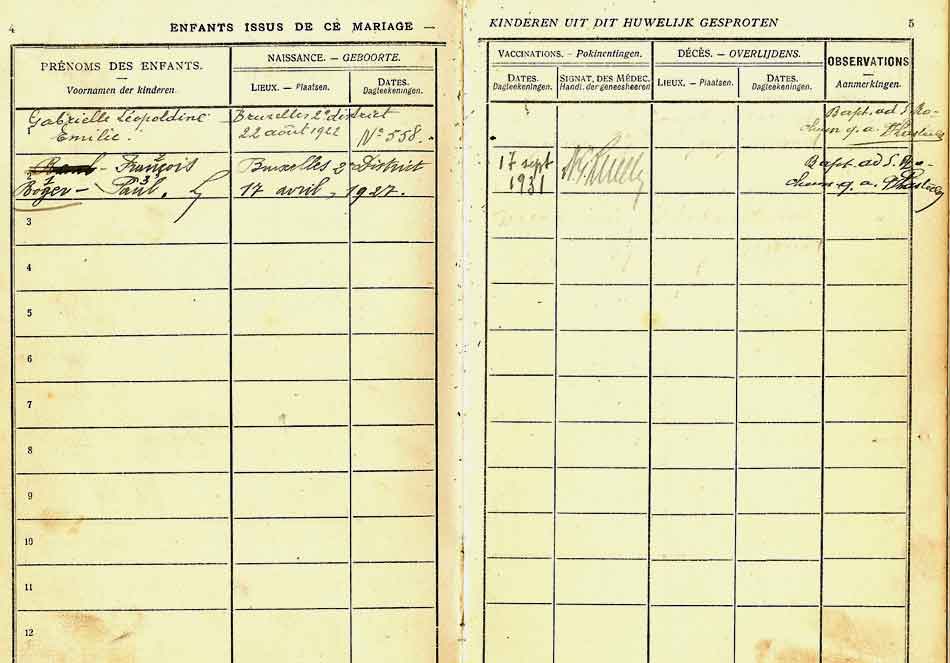 4
ENFANTS ISSUS DE CE MARIAGE —
PRÉNOMS DES ENFANTS.
Voornamen der kinderen.
NAISSANCE. — GEBOORTE.
LIEUX. — Plaatsen.
DATES.
Dagteekeningen.
1
Gabrielle Léopoldine
Emilie.
Bruxelles 2e district
22 août 1922
No 558.
2
François
Roger — Paul.
Bruxelles 2e District
17 avril, 1927.
3
4
5
6
7
8
9
10
11
12
KINDEREN UIT DIT HUWELIJK GESPROTEN
5
VACCINATIONS. — Pokinentingen.
DATES.
Dagteekeningen.
SIGNAT. DES MÉDEC.
Handt. der geneesheeren
DÉCÈS. — OVERLIJDENS.
LIEUX. — Plaatsen.
DATES.
Dagteekeningen.
OBSERVATIONS
Aanmerkingen.
Bapt. ad S. Ro-
chum g. a.
17 sept
1931
Bapt. ad S. Ro-
chum g. a.